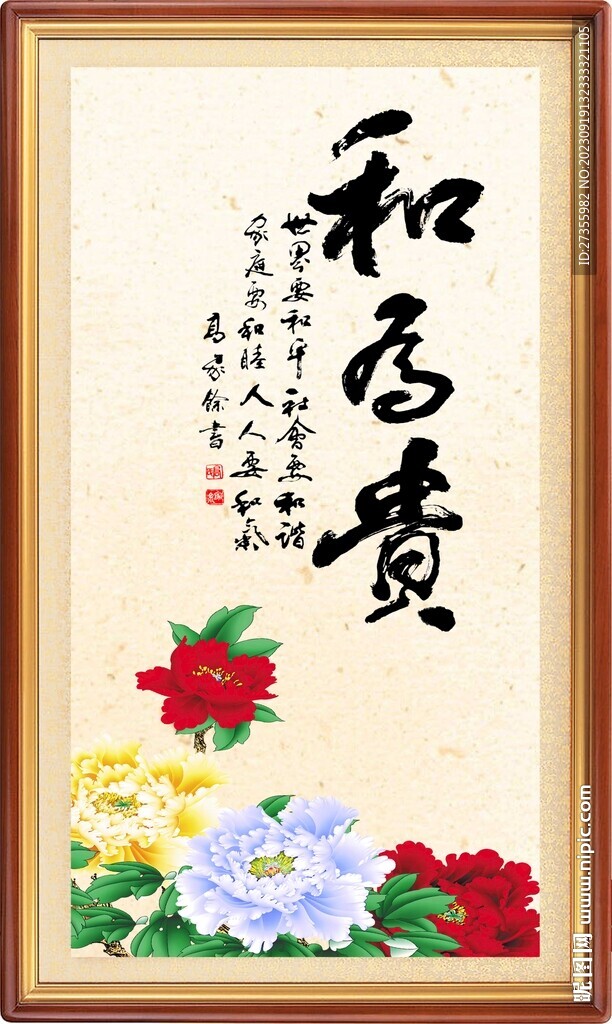 和为貴
世界要和平社會要和谐
家庭要和睦人人要和氣
高家餘書
ID:27355982 NO:20230919132333321105
昵图网 www.nipic.com